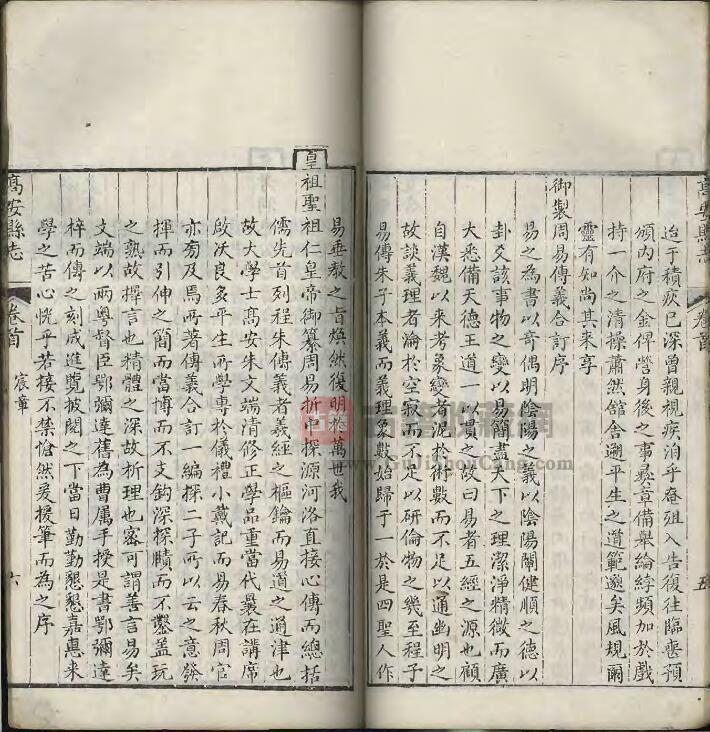 高安縣志
卷首
五
迨于積疾已深曾親視疾洎乎眷殂入告復往臨喪預
頒內府之金俾營身後之事彝章備舉綸綍頻加於戲
持一介之清操蕭然館舍遡平生之道範邈矣風規爾
靈有知尚其來享
御製周易傳義合訂序
易之為書以奇偶明陰陽之義以陰陽闡健順之德以
卦爻該事物之變以易簡盡天下之理潔淨精微而廣
大悉備天德王道一以貫之故曰易者五經之源也顧
自漢魏以來考象變者泥於術數而不足以通幽明之
故談義理者淪於空寂而不足以研倫物之幾至程子
易傳朱子本義而義理象數始歸于一於是四聖人作
易垂教之旨煥然復明於萬世我
皇祖聖祖仁皇帝御纂周易折中探源河洛直接心傳而總括
儒先首列程朱傳義者義經之樞鑰而易道之通津也
故大學士高安朱文端清修正學品重當代曩在講席
啟沃良多平生所學專於儀禮小戴記而易春秋周官
亦旁及焉所著傳義合訂一編採二子所以云之意發
揮而引伸之簡而當博而不支鈎深探賾而不鑿盖玩
之熟故擇言也精體之深故析理也密可謂善言易矣
文端以兩粤督臣鄂彌達舊為曹属手授是書鄂彌達
梓而傳之刻成進覽披閱之下當日勤勤懇懇嘉惠来
學之苦心恍乎若接不禁愴然爰援筆而為之序
高安縣志
卷首
宸章
六
古籍收藏網
www.GuJiShouCang.com